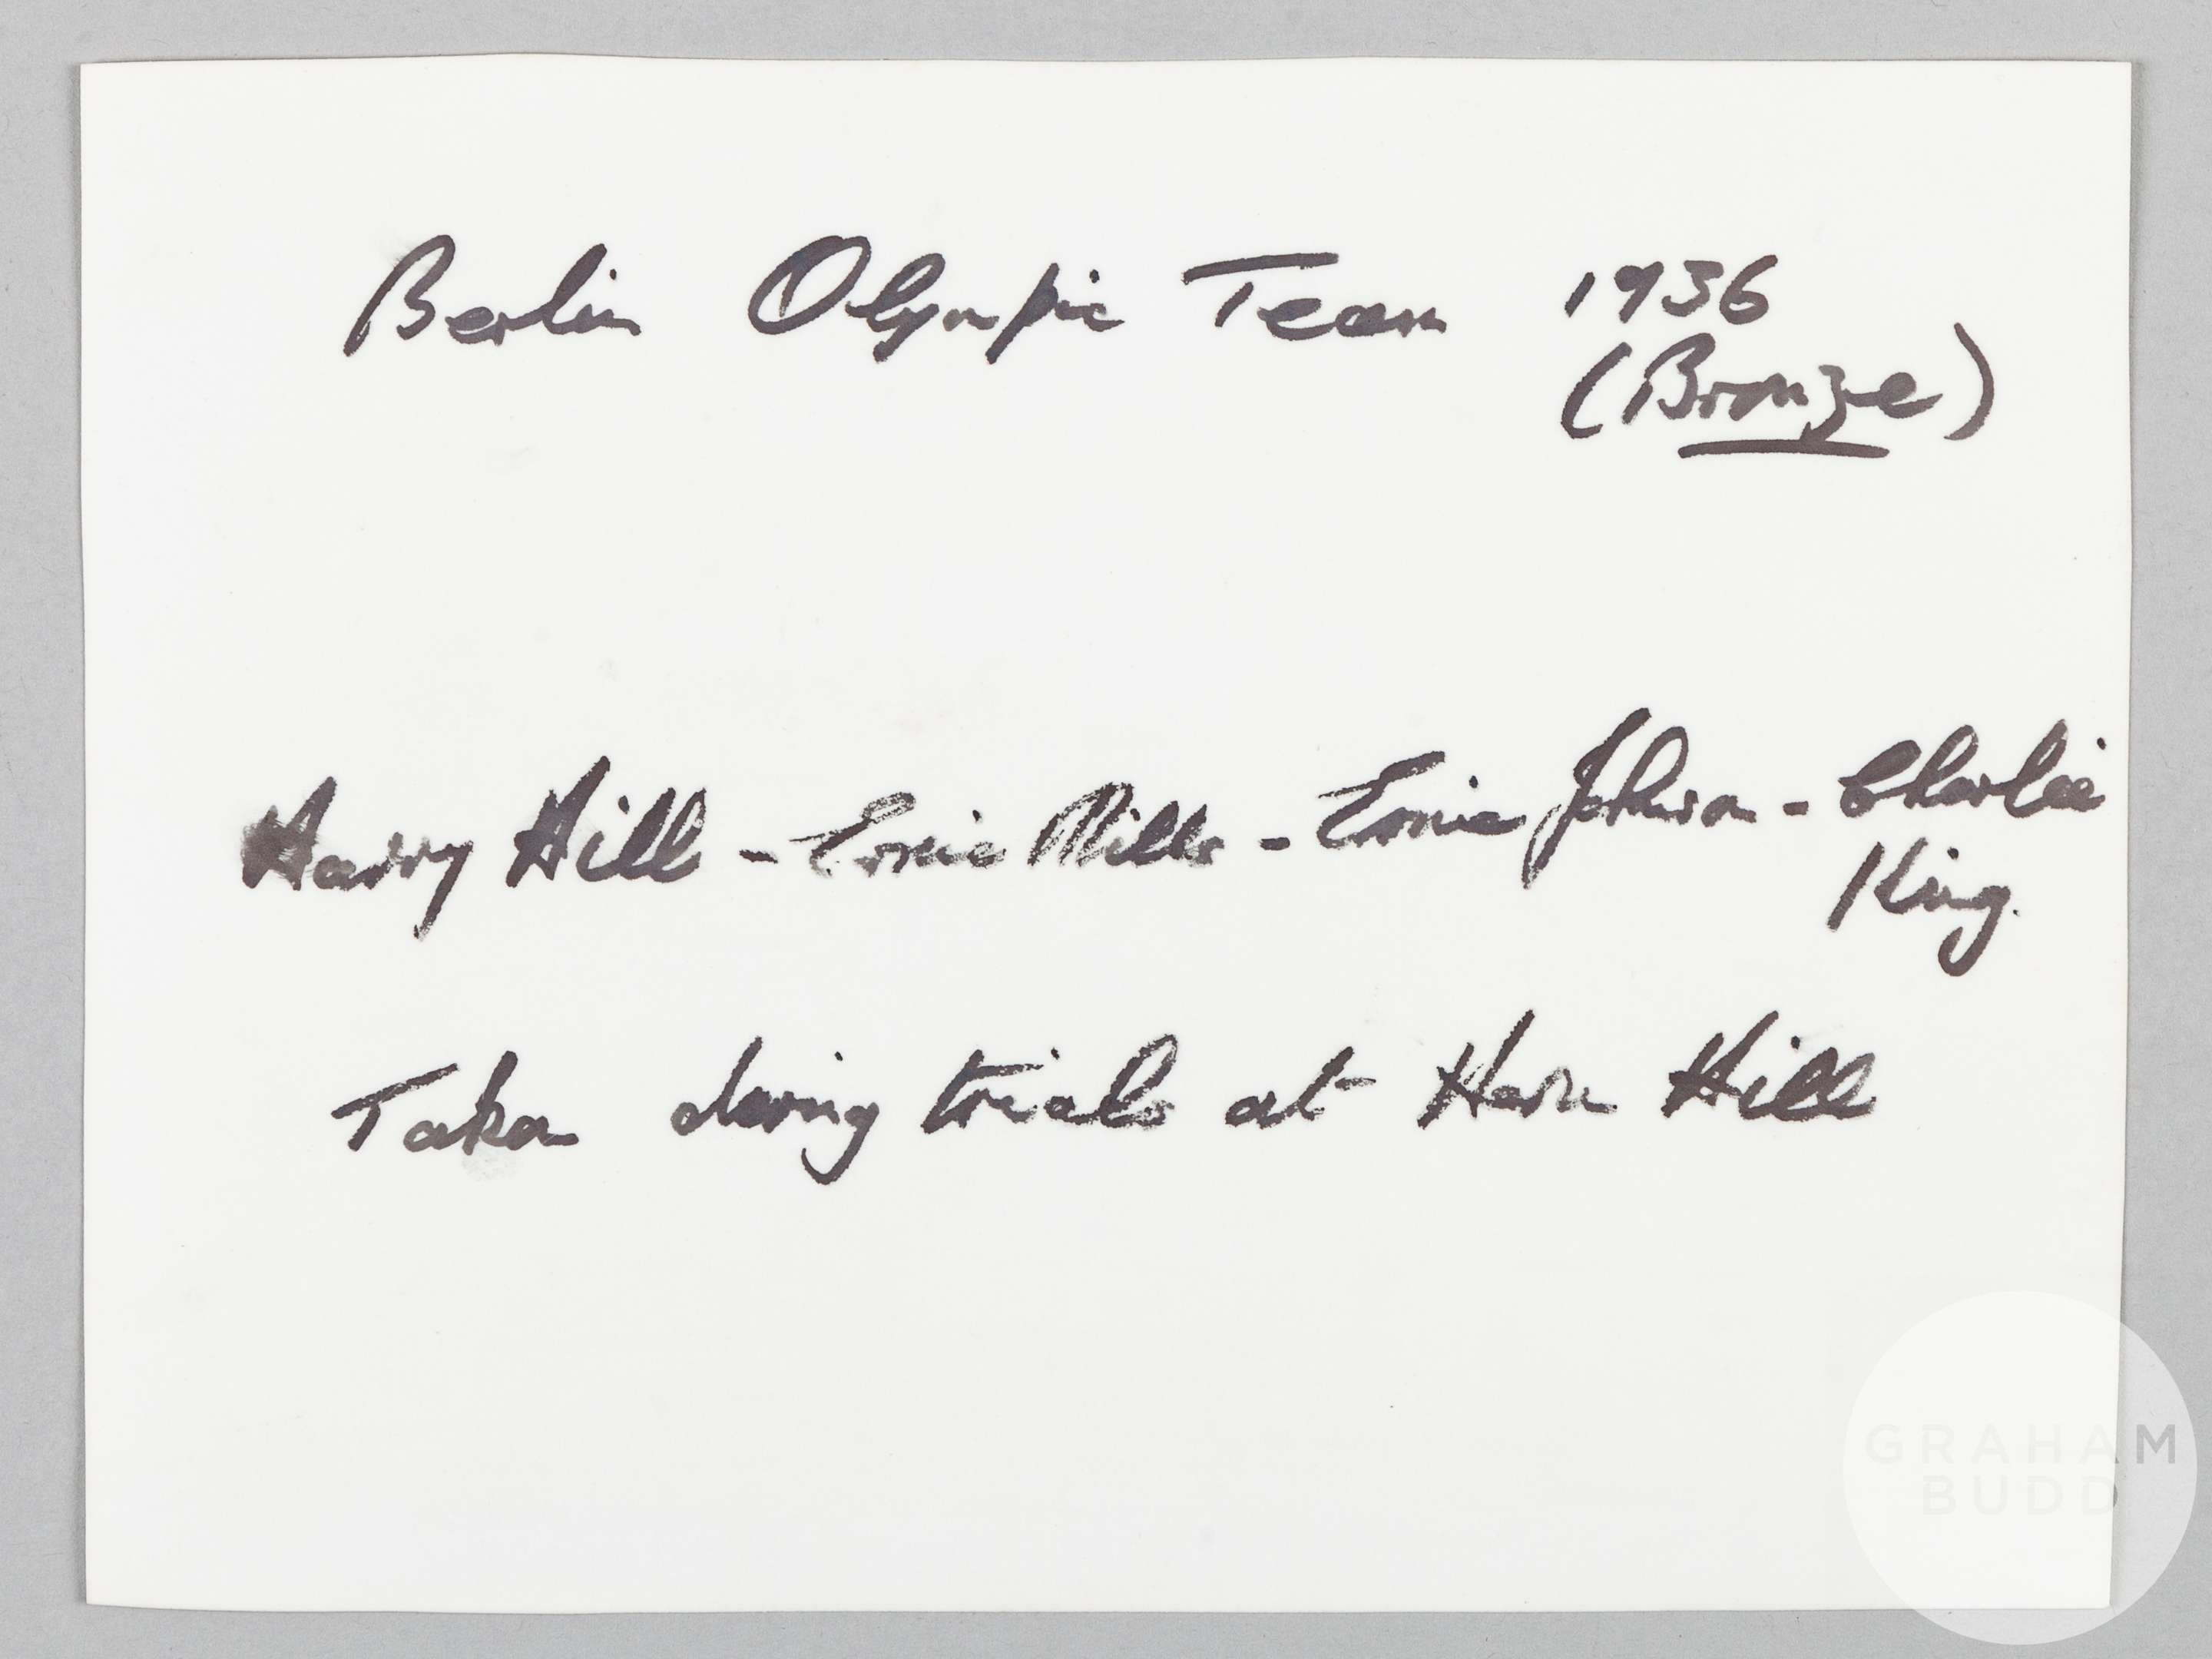 Berlin Olympic Team 1936
(Bronze)
Harry Hill - Ernie Mills - Ernie Johnson - Charlie
King.
Taken during trials at Hern Hill
GRAHAM
BUDD